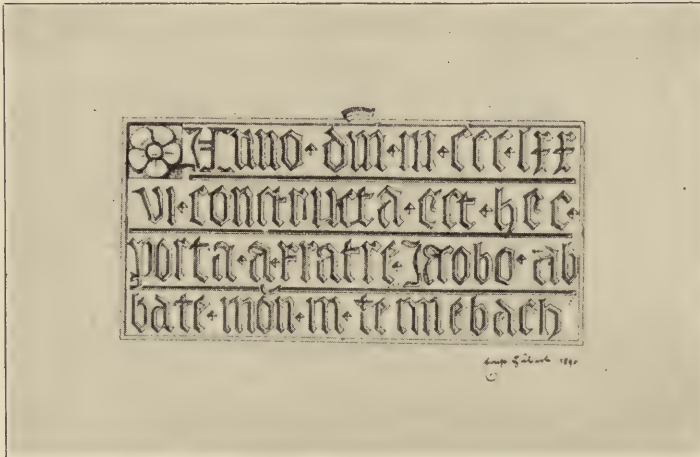 Anno·dni·m·ccc·lxx
vi·constructa·est·hec·
porta·a·fratre·Jacobo·ab
bate·mōn·in·tennebach
1890